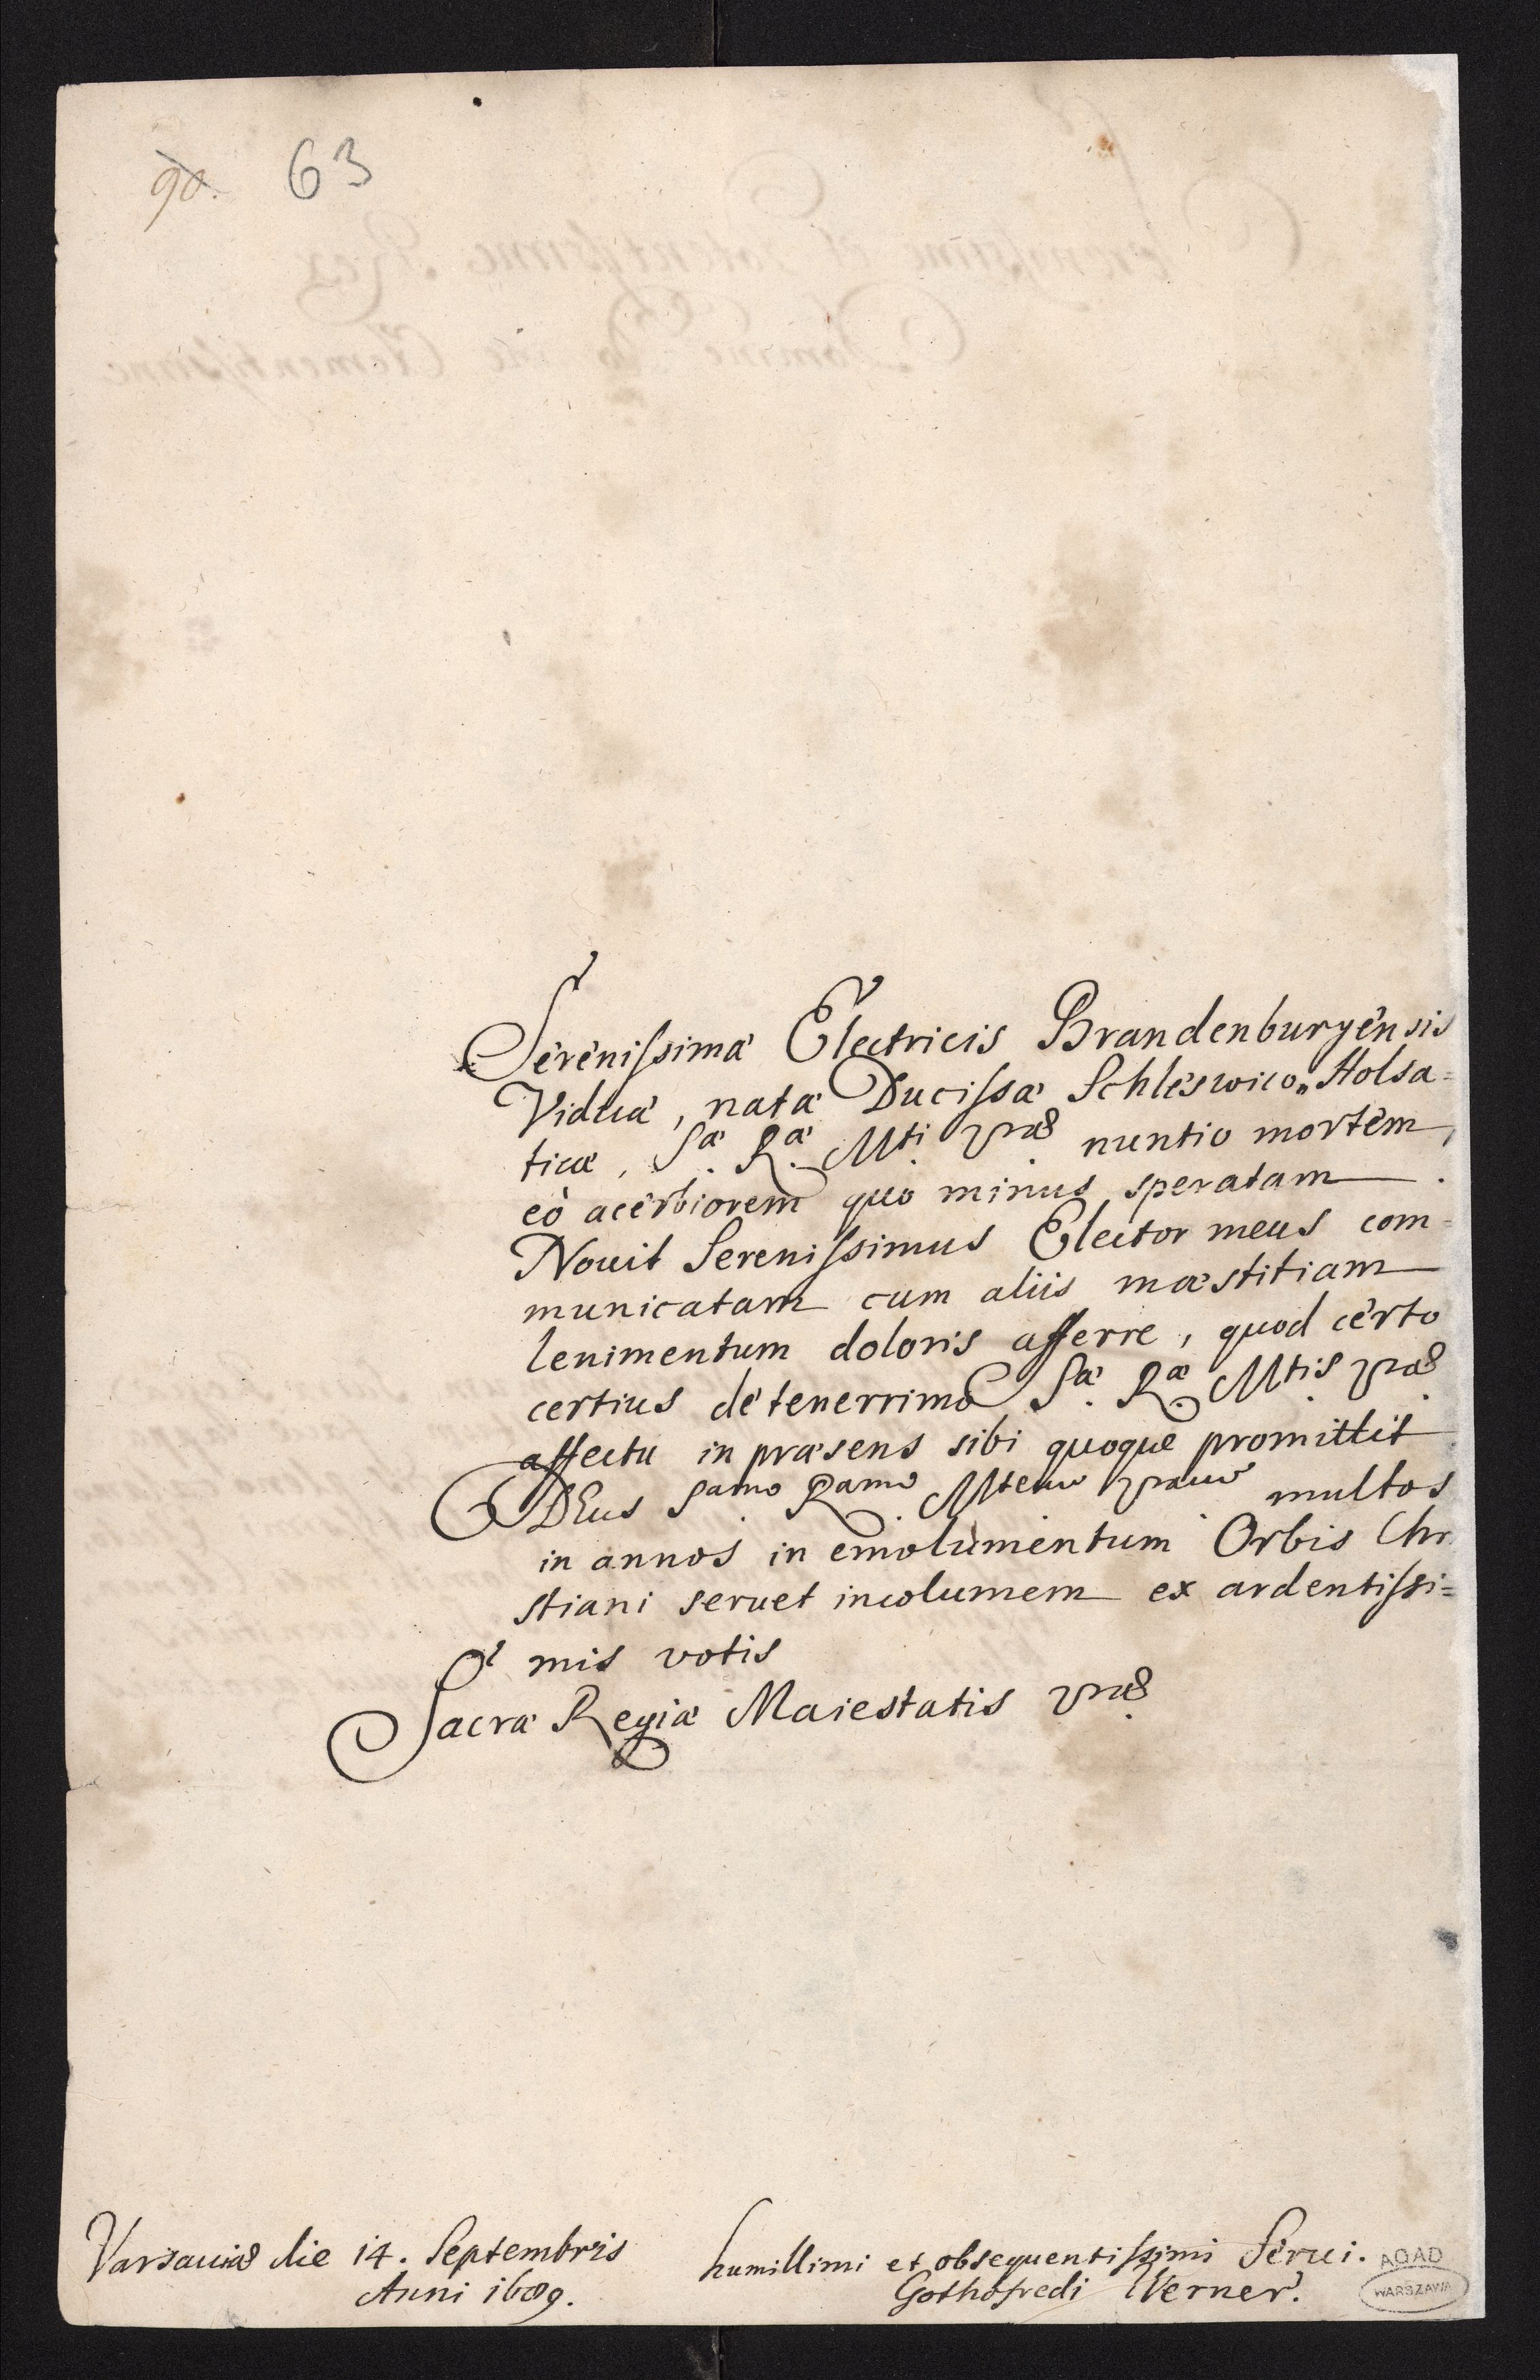 90. 63
Serenissimæ Electricis Brandenburgensis
Viduæ, natæ Ducissæ Schleswico„Holsa=
ticæ, Sæ. Ræ. Mti. vræ nuntio mortem,
eò acerbiorem quo minus speratam.
Novit Serenissimus Elector meus com=
municatam cum aliis mæstitiam
lenimentum doloris afferre, quod certo
certius de tenerrimo Sæ. Ræ. Mtis. vræ
affectu in præsens sibi quoque promittit
DEus Sam. Ram. Mtem. vram multos
in annos in emolumentum Orbis Chr
stiani servet incolumem ex ardentissi=
mis votis
Sacræ Regiæ Maiestatis vræ
Varsaviæ die 14. Septembris
Anni 1689.
humillimi et obsequentissimi Servi.
Gothofredi Werner.
AGAD
WARSZAWA